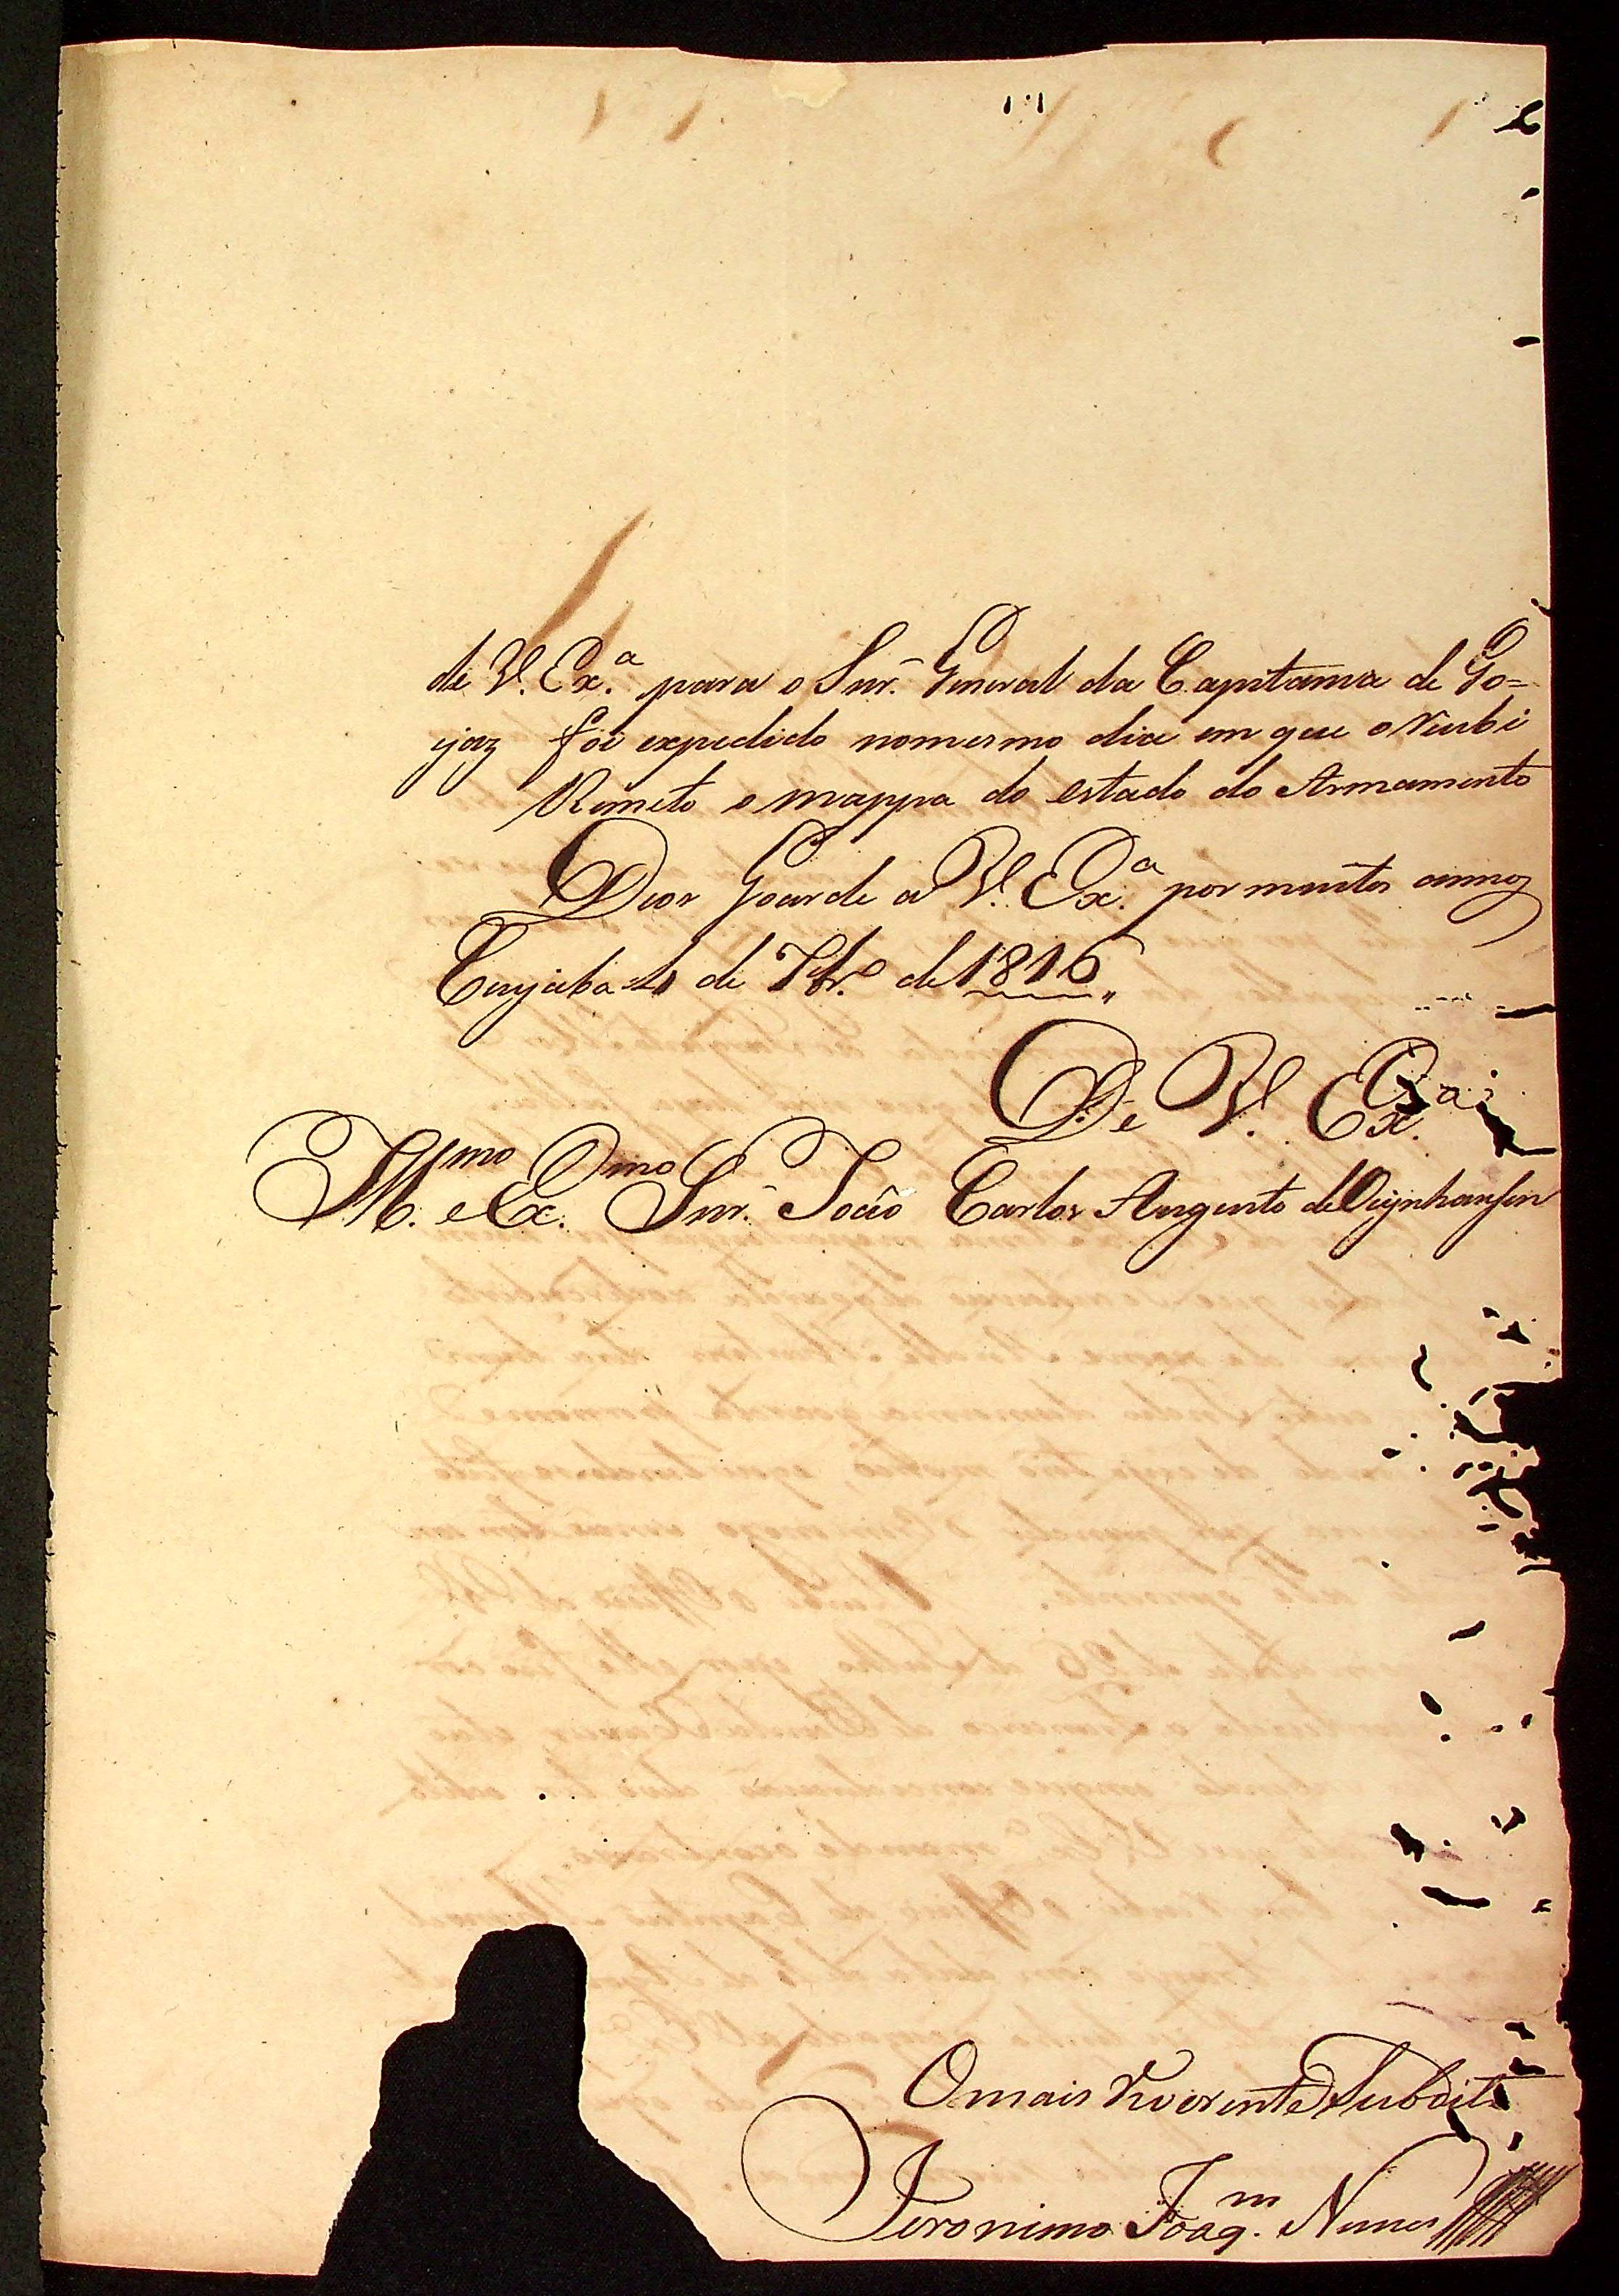 de V. Ex.ª para o Snr. General da Capitania de Go=
yaz foi expedido nomesmo dia em que o recebi
Remeto o mappa do estado do Armamento
Deos Goarde a V. Ex.ª por muitos annoz
Cuyaba de 7br.º de 1816
De V. Ex.ª
Ill.mo e Ex.mo Snr. João Carlos Augusto de Oeynhausen
Omais Reverente Subdito
Jeronimo Joaq.m Nunes